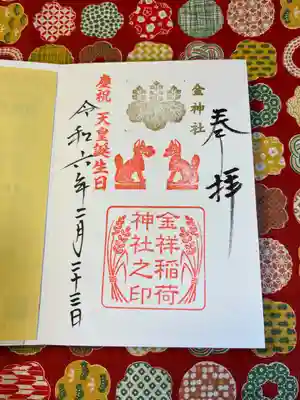 奉拝
金神社
慶祝 天皇誕生日
金祥稲荷
神社之印
令和六年二月二十三日